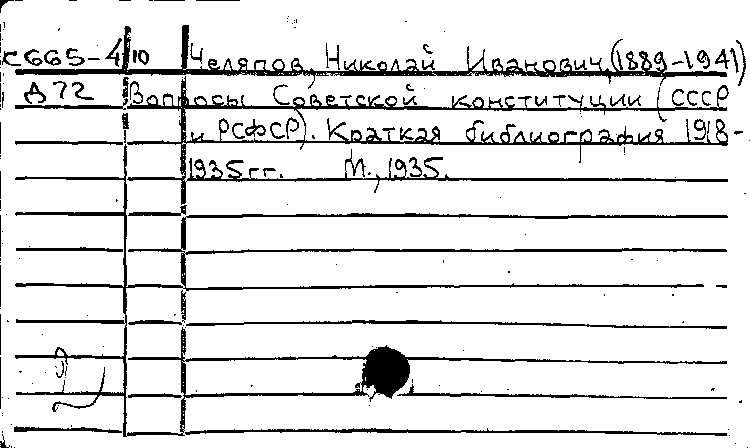 С665-4 10 Челяпов, Николай Иванович, (1889-1941)
Д72 Вопросы Советской конституции (СССР
и РСФСР). Краткая библиография 1918-
1935 гг. М., 1935.